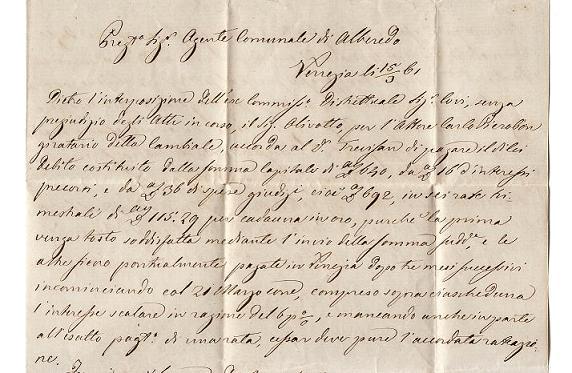 Prezto Sigr Agente Comunale di Alberedo
Venezia li 15/3 61
Dietro l'interposizione dell'exe Commisso Distrettuale Sigr Covi, senza
pregiudizio degli Atti in corso, il Sigr Olivotto, per l'Attore Carlo Pierobon
giratario della Cambiale, accorda al Sr Trevisan di pagare il di lei
debito costituito dalla somma capitale di 640, da 16 d'interessi
precorsi, e da 36 di spese giudizi, cioè 692, in sei rate tri-
mestrali di 115:29 per cadauna in oro, purchè la prima
venga tosto soddisfatta mediante l'invio della somma suddta e le
altre sieno pontualmente pagate in Venezia dopo tre mesi successivi
incominciando col 21 Marzo corrte, compreso sopra ciascheduna
l'interesse scalare in ragione del 6 p%, e mancando anche in parte
all'esatto pagto di una rata, cessar deve pure l'accordata rateazio-
ne.